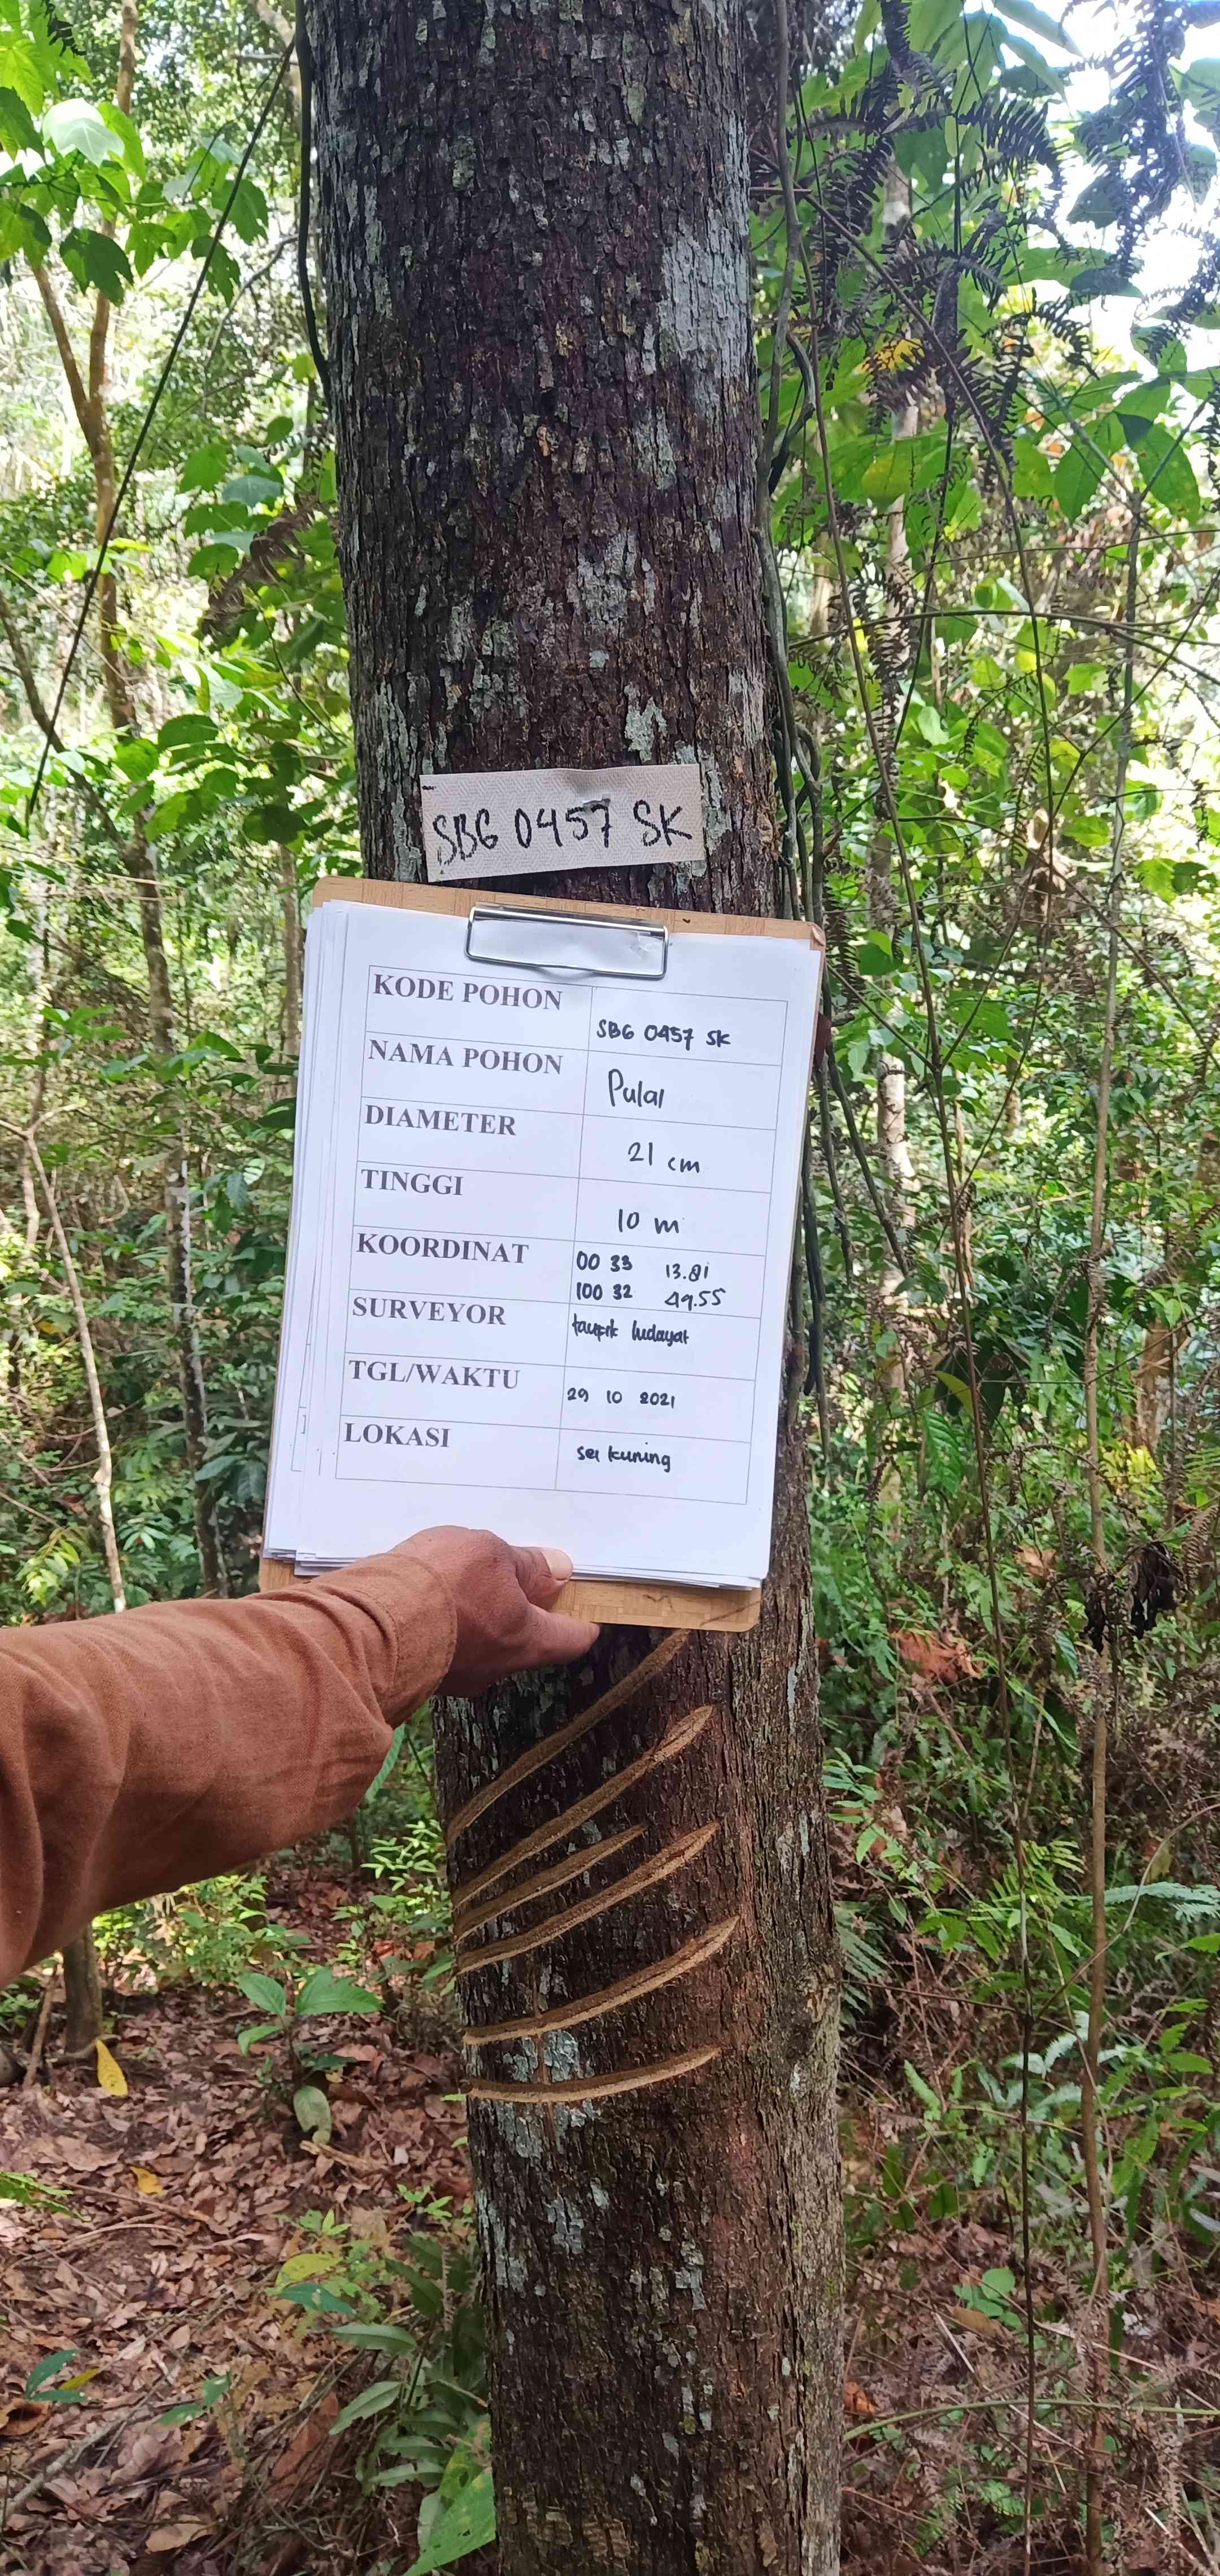 SBG 0457 SK
KODE POHON
SBG 0457 SK
NAMA POHON
Pulai
DIAMETER
21 cm
TINGGI
10 m
KOORDINAT
00 33 13.81
100 32 49.55
SURVEYOR
taupik hidayat
TGL/WAKTU
29 10 2021
LOKASI
sei kuning